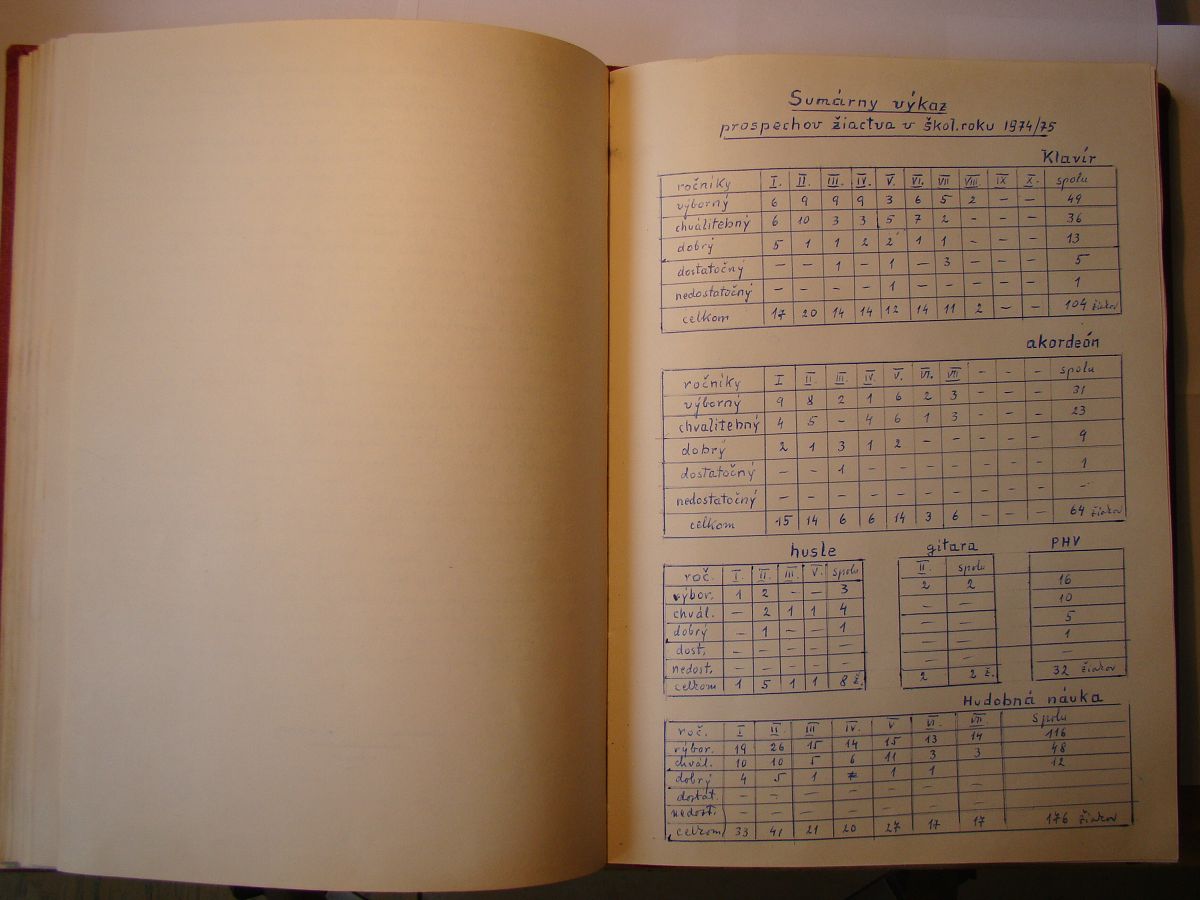 Sumárny výkaz
prospechov žiactva v škol.roku 1974/75
Klavír
ročníky I. II. III. IV. V. VI. VII VIII IX X. spolu
výborný 6 9 9 9 3 6 5 2 — — 49
chválitebný 6 10 3 3 5 7 2 — — — 36
dobrý 5 1 1 2 2 1 1 - - - 13
dostatočný — — 1 — 1 — 3 - - - 5
nedostatočný — — — — 1 — — — — — 1
celkom 17 20 14 14 12 14 11 2 — — 104 žiakov
akordeón
ročníky I II. III. IV. V. VI. VII - - - spolu
výborný 9 8 2 1 6 2 3 - - - 31
chvalitebný 4 5 - 4 6 1 3 - - - 23
dobrý 2 1 3 1 2 - - - - - 9
dostatočný — — 1 - - - - - - - 1
nedostatočný — — — — — — — — — — -
celkom 15 14 6 6 14 3 6 - - - 64 žiakov
husle
roč. I. II. III. V. spolu
výbor. 1 2 - — 3
chvál. — 2 1 1 4
dobrý — 1 — — 1
dost. — — — — —
nedost. — — — — —
celkom 1 5 1 1 8 ž.
gitara
II. spolu
2 2
— —
— —
— —
— —
2 2 ž.
PHV
16
10
5
1
—
32 žiakov
Hudobná náuka
roč. I II. III IV. V VI. VII. spolu
výbor. 19 26 15 14 15 13 14 116
chvál. 10 10 5 6 11 3 3 48
dobrý 4 5 1 1 1 12
dostat. — — — — — —
nedost. — — — — — —
celkom 33 41 21 20 27 17 17 176 žiakov